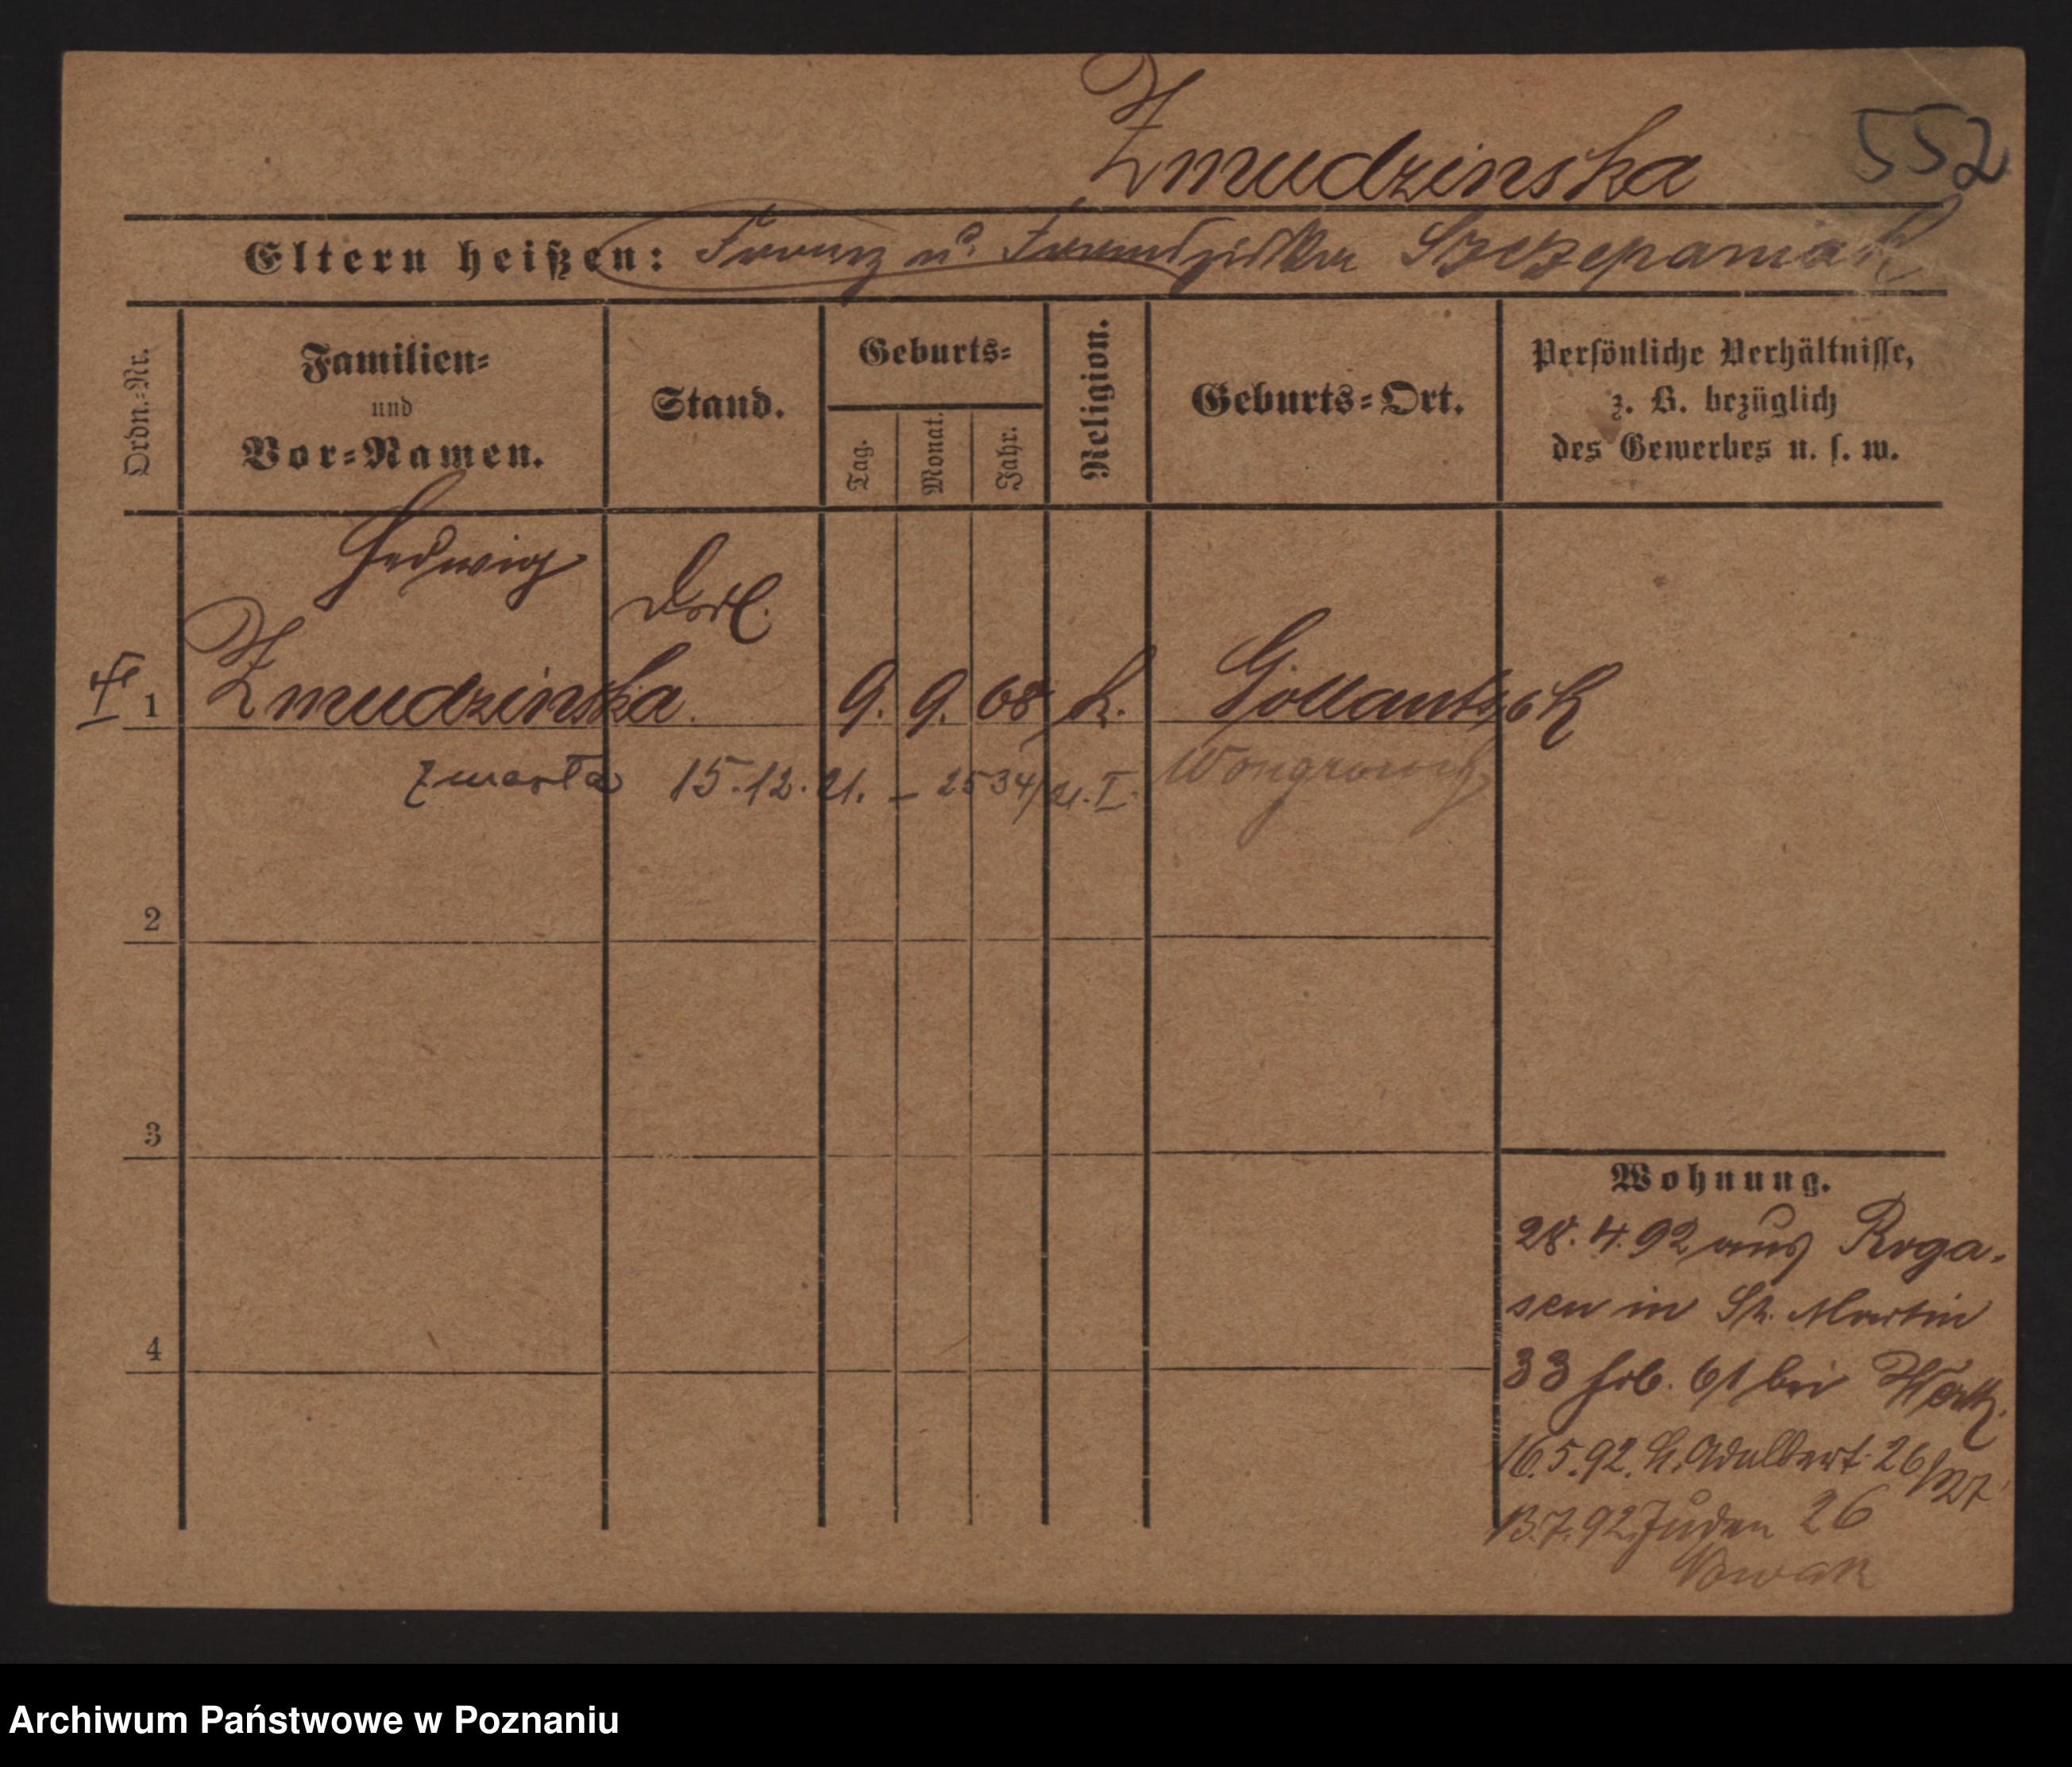 552
Zmudzinska
Eltern heißen: Franz u. Franziska Szczepaniak
Ordn.-Nr.
Familien-
und
Vor-Namen.
Stand.
Geburts-
Tag.
Monat.
Jahr.
Religion.
Geburts-Ort.
Persönliche Verhältnisse,
z. B. bezüglich
des Gewerbes u. s. w.
Hedwig
1 Zmudzinska. 9. 9. 68 k. Gollantsch
zmarła 15.12.21. – 2534/21.I. Wongrowitz
2
3
4
Wohnung.
28.4.92 aus Roga-
sen in St. Martin
33 hrb. bei
16.5.92. St. Adalbert 26/27
13.7.92. Juden 26
Nowak
Archiwum Państwowe w Poznaniu